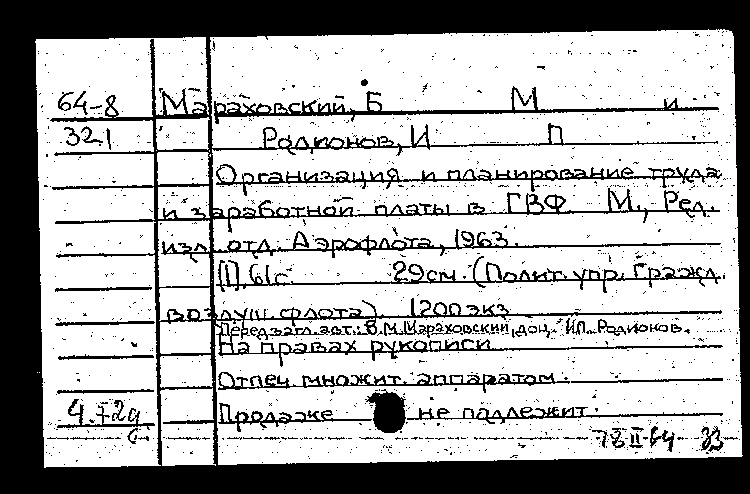 64-8 Мараховский, Б М и
321 Радионов, И П
Организация и планирование труда
и заработной платы в ГВФ М., Ред.
изд. отд. Аэрофлота, 1963.
[1], 61с 29см. (Полит. упр. Гражд.
воздуш. флота). 1200 экз
Перед загл. авт.: Б.М. Мараховский, доц. И.П. Радионов.
На правах рукописи
Отпеч. множит. аппаратом.
Продаже не подлежит.